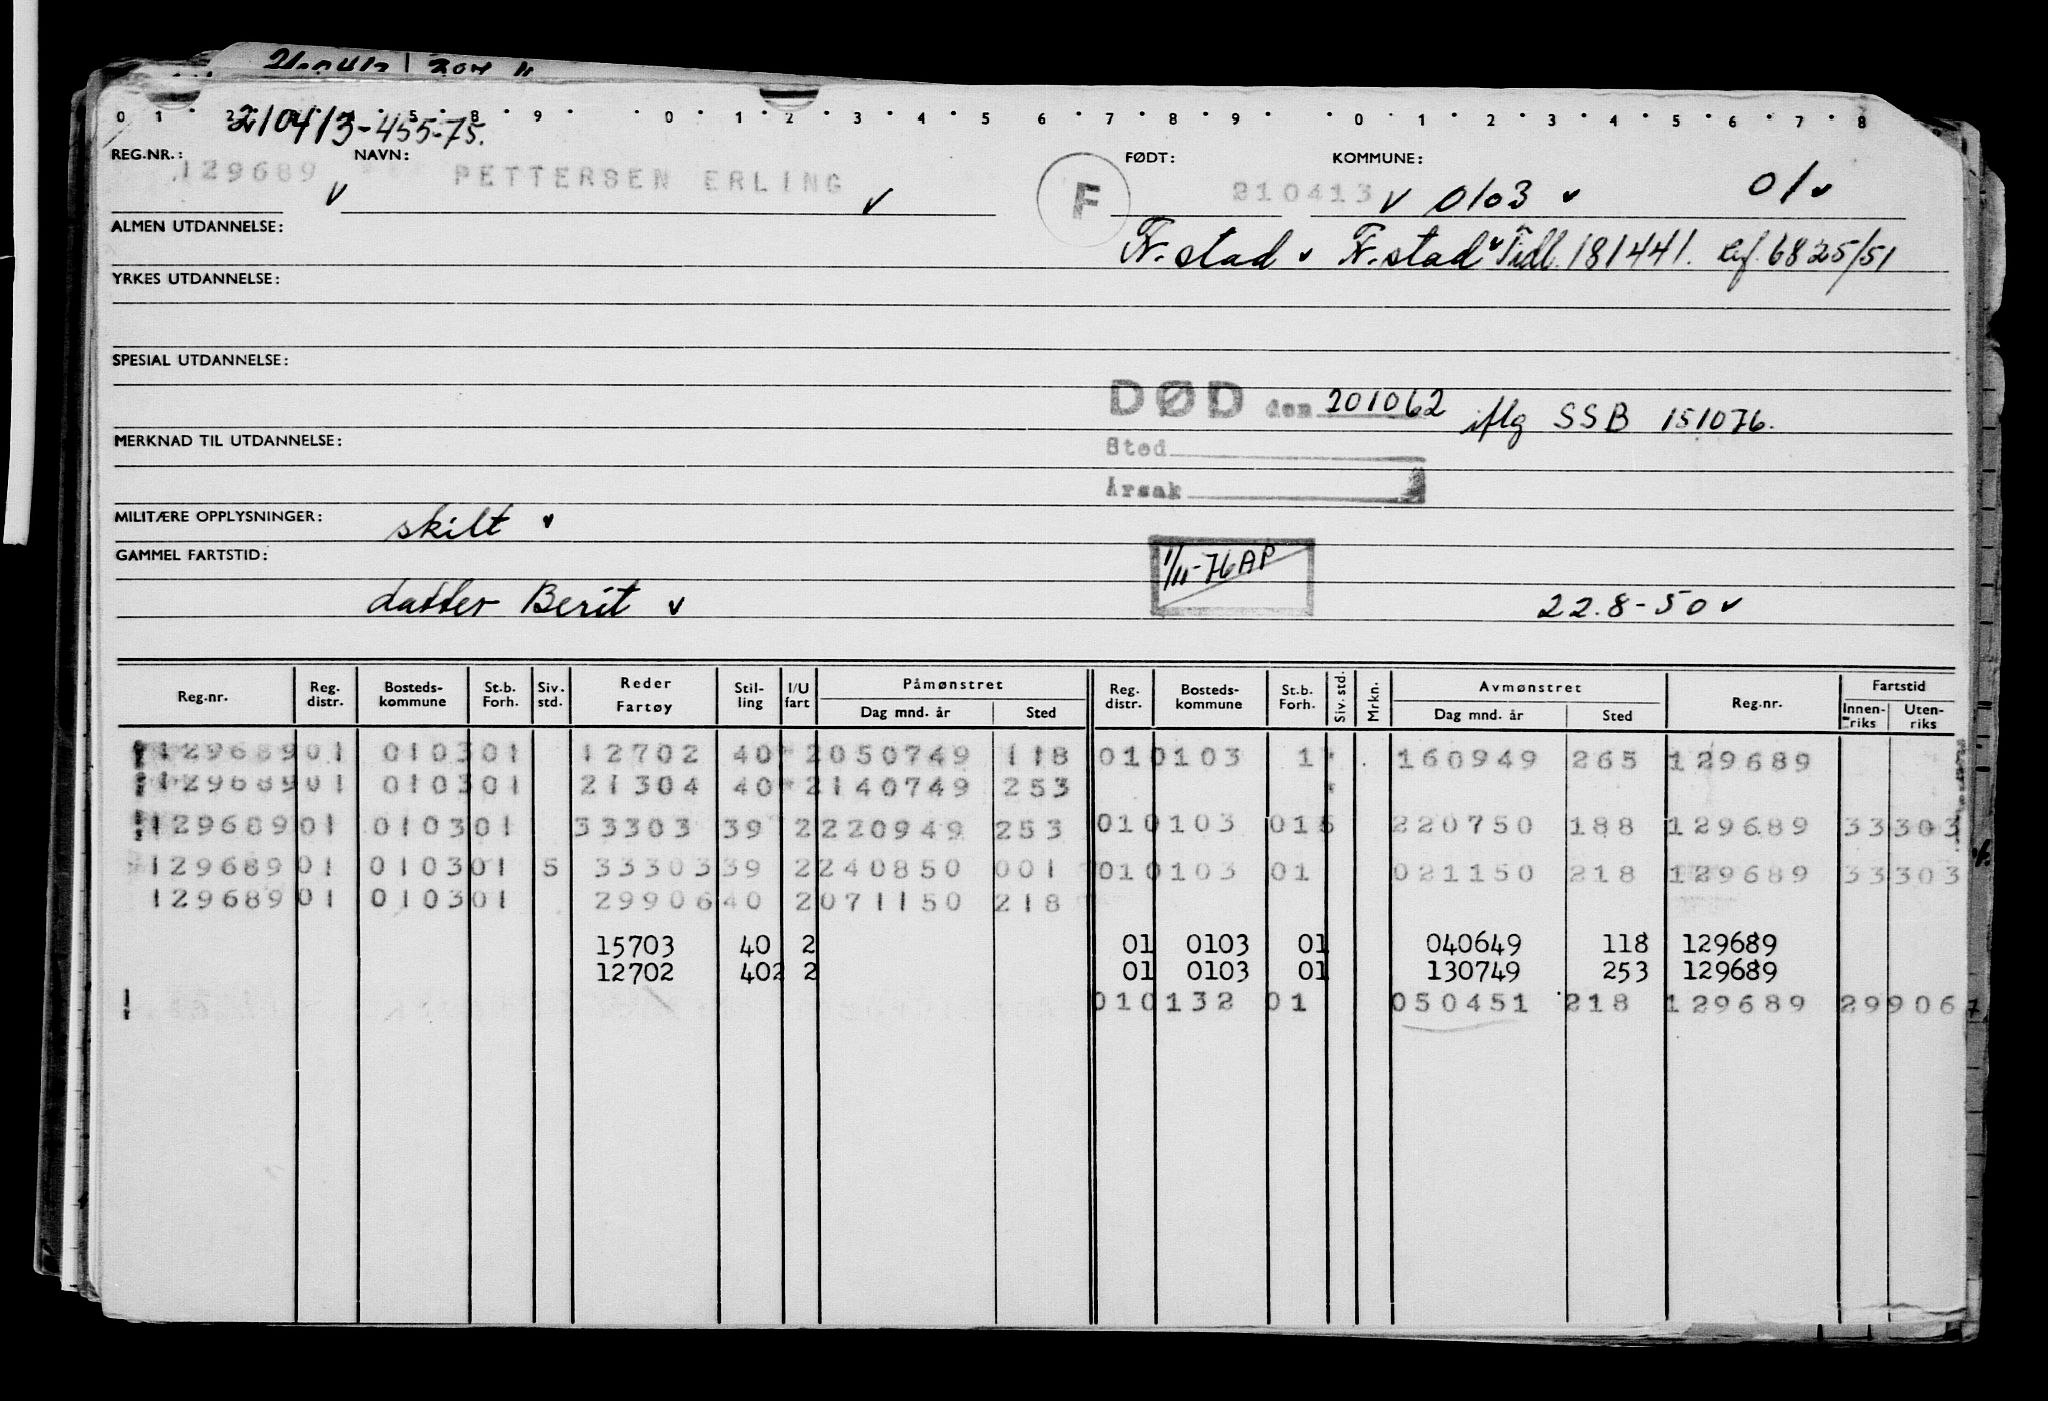 0 1 2 5 8 9 0 1 2 3 4 5 6 7 8 9 0 1 2 3 4 5 6 7 8
210413-455-75.
REG.NR.: NAVN: FØDT: KOMMUNE:
129689 v PETTERSEN ERLING v F 210413 v 0103 v 01 v
ALMEN UTDANNELSE: Fr.stad v Fr.stad v Tidl. 181441. ref. 6825/51
YRKES UTDANNELSE:
SPESIAL UTDANNELSE:
DØD den 201062 iflg SSB 151076.
MERKNAD TIL UTDANNELSE: Sted
Årsak
MILITÆRE OPPLYSNINGER: skilt v
GAMMEL FARTSTID: 1/11-76 AP
datter Berit v 22.8-50 v
Reg.nr. Reg. distr. Bosteds-kommune St.b. Forh. Siv. std. Reder Fartøy Stil-ling I/U fart Påmønstret Dag mnd. år Sted Reg. distr. Bosteds-kommune St.b. Forh. Siv. std. Mrkn. Avmønstret Dag mnd. år Sted Reg.nr. Fartstid Innen-riks Uten-riks
129689 01 0103 01 12702 40 2 050749 118 01 0103 1 160949 265 129689
129689 01 0103 01 21304 40 2 140749 253
129689 01 0103 01 33303 39 2 220949 253 01 0103 01 S 220750 188 129689 33303
129689 01 0103 01 S 33303 39 2 240850 001 01 0103 01 021150 218 129689 33303
129689 01 0103 01 29906 40 2 071150 218
15703 40 2 01 0103 01 040649 118 129689
12702 402 2 01 0103 01 130749 253 129689
01 0132 01 050451 218 129689 29906